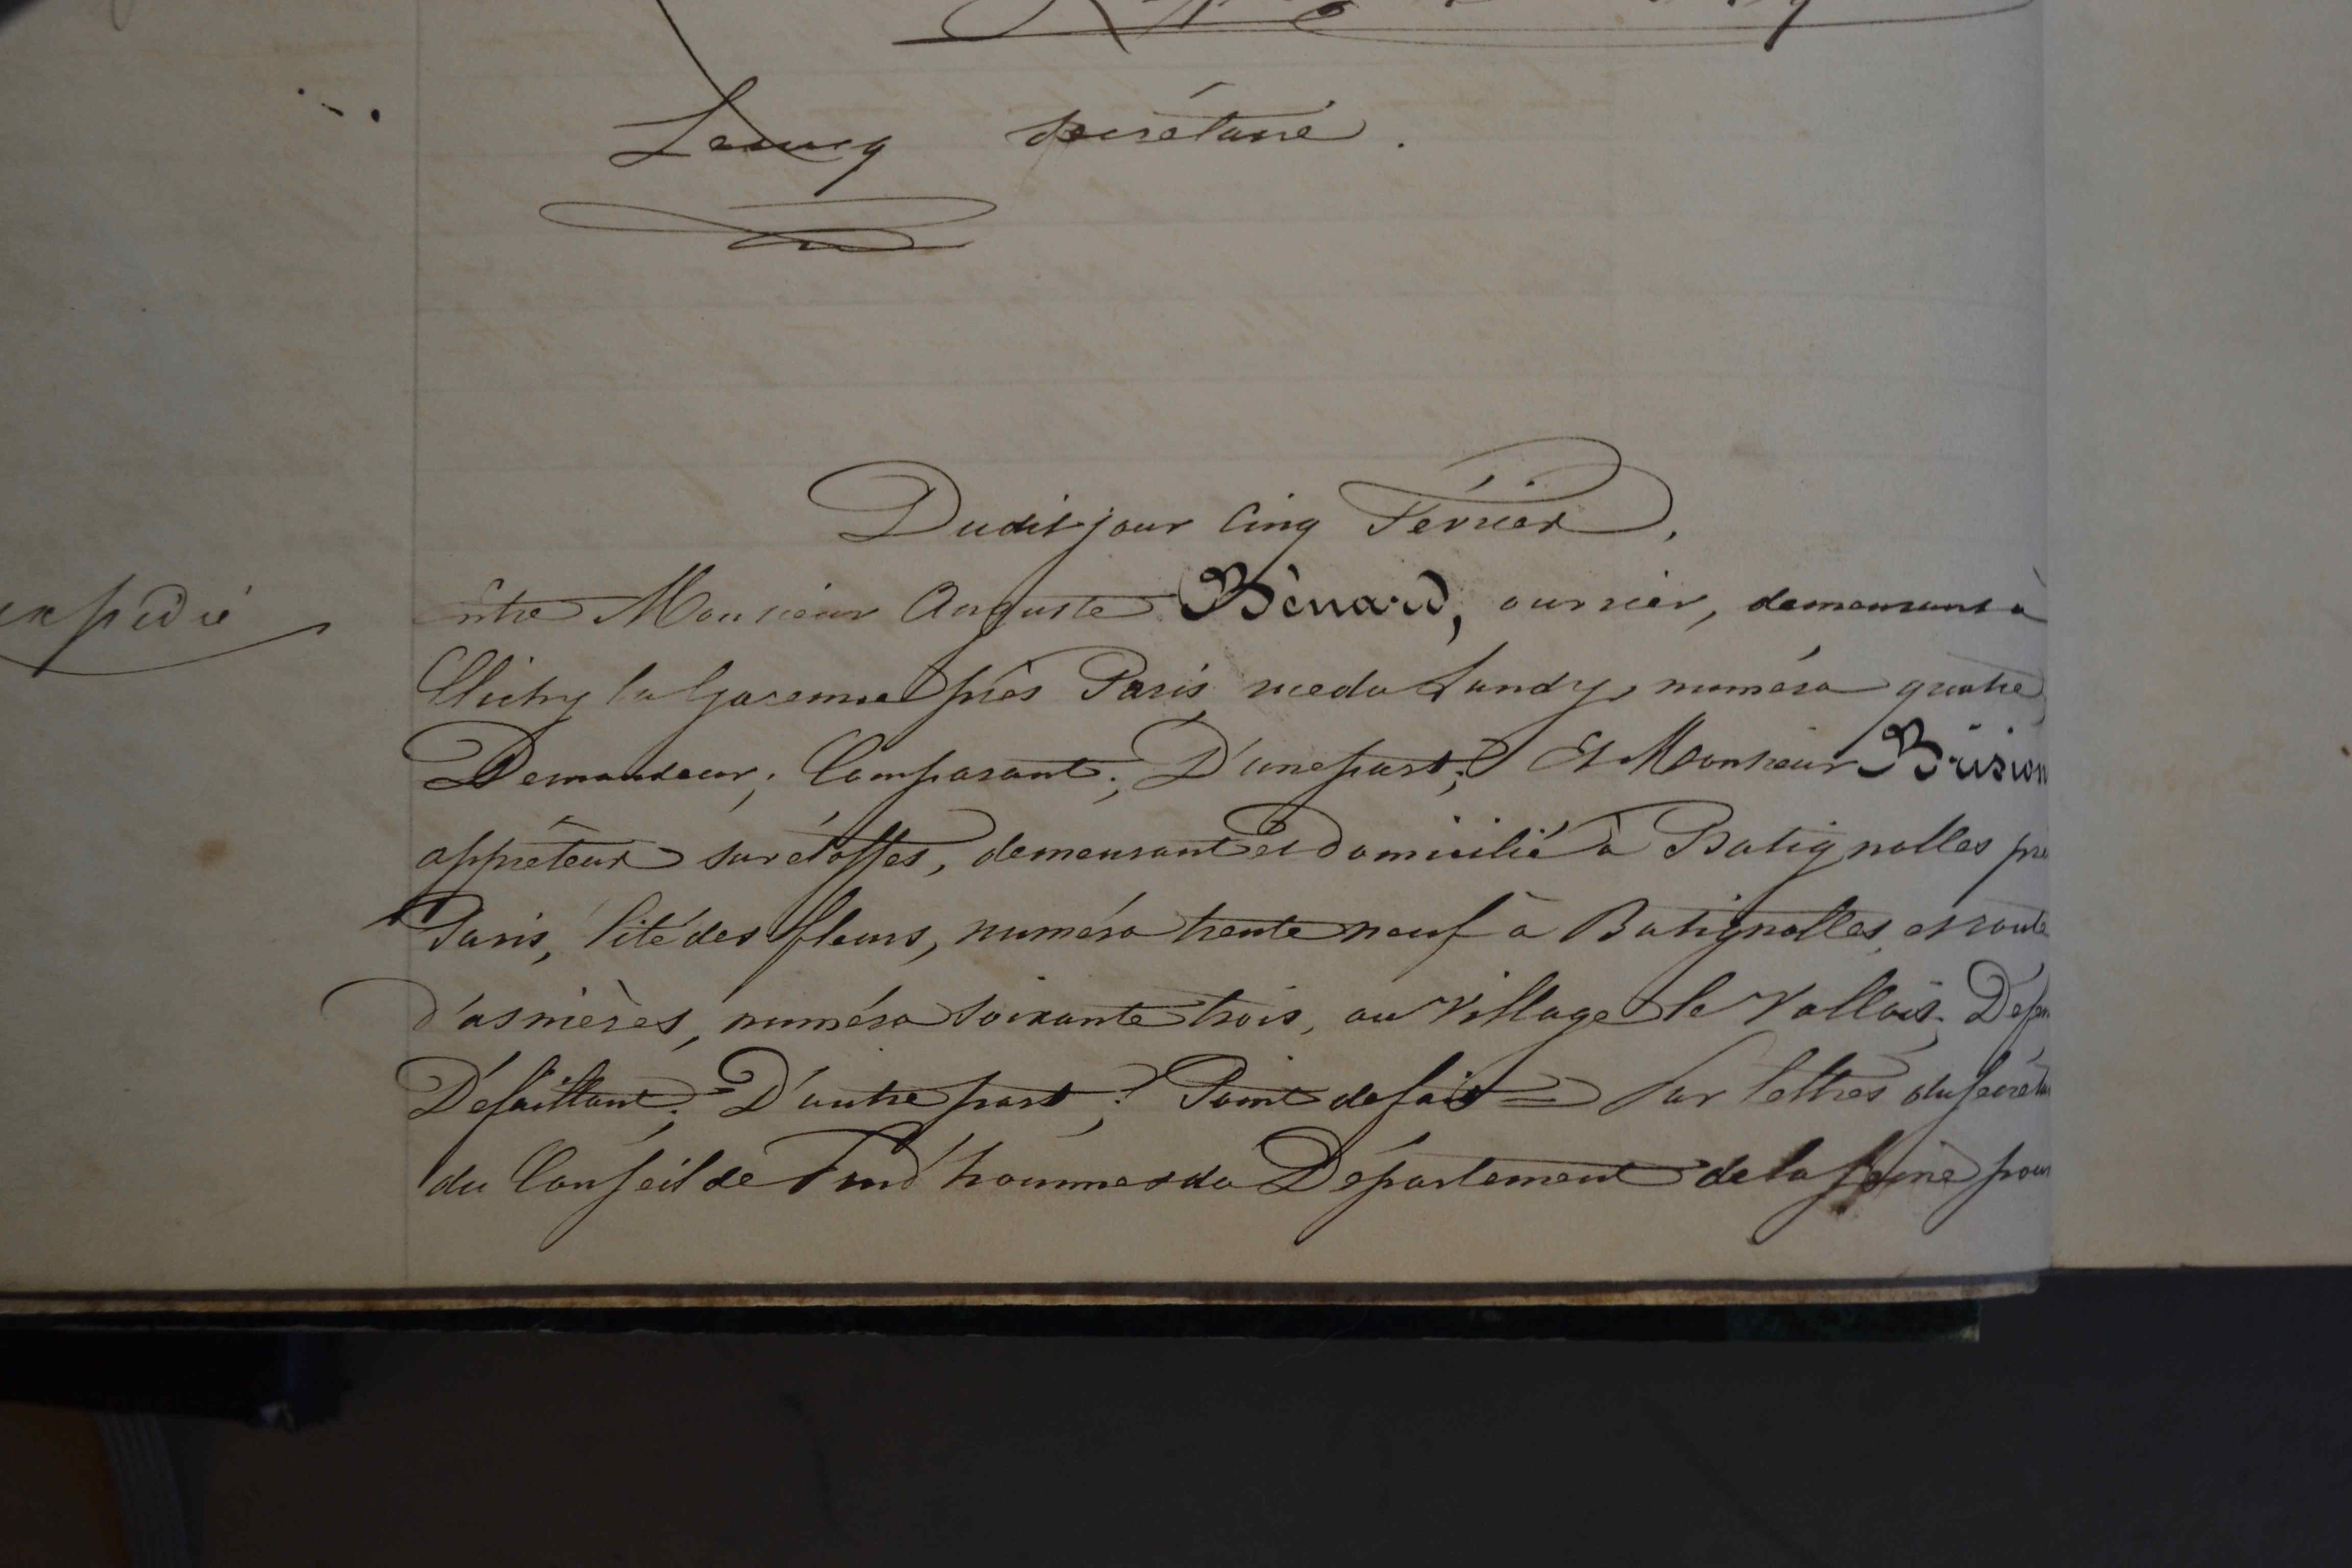 Lecucq secrétaire.
Dudit jour Cinq Février,
expédié
Entre Monsieur Auguste Bénard, ouvrier, demeurant à
Clichy la Garenne près Paris, rue du Landy, numéro quatre,
Demandeur; Comparant; D'une part; Et Monsieur Brision
apprêteur sur étoffes, demeurant et domicilié à Batignolles prè
Paris, Cité des fleurs, numéro trente neuf à Batignolles, et route
d'asnières, numéro soixante trois, au Village le Vallois. Défen
Défaillant; D'autre part; Point de fait = Sur lettres du secréta
du Conseil de Prud'hommes du Département de la Seine pour